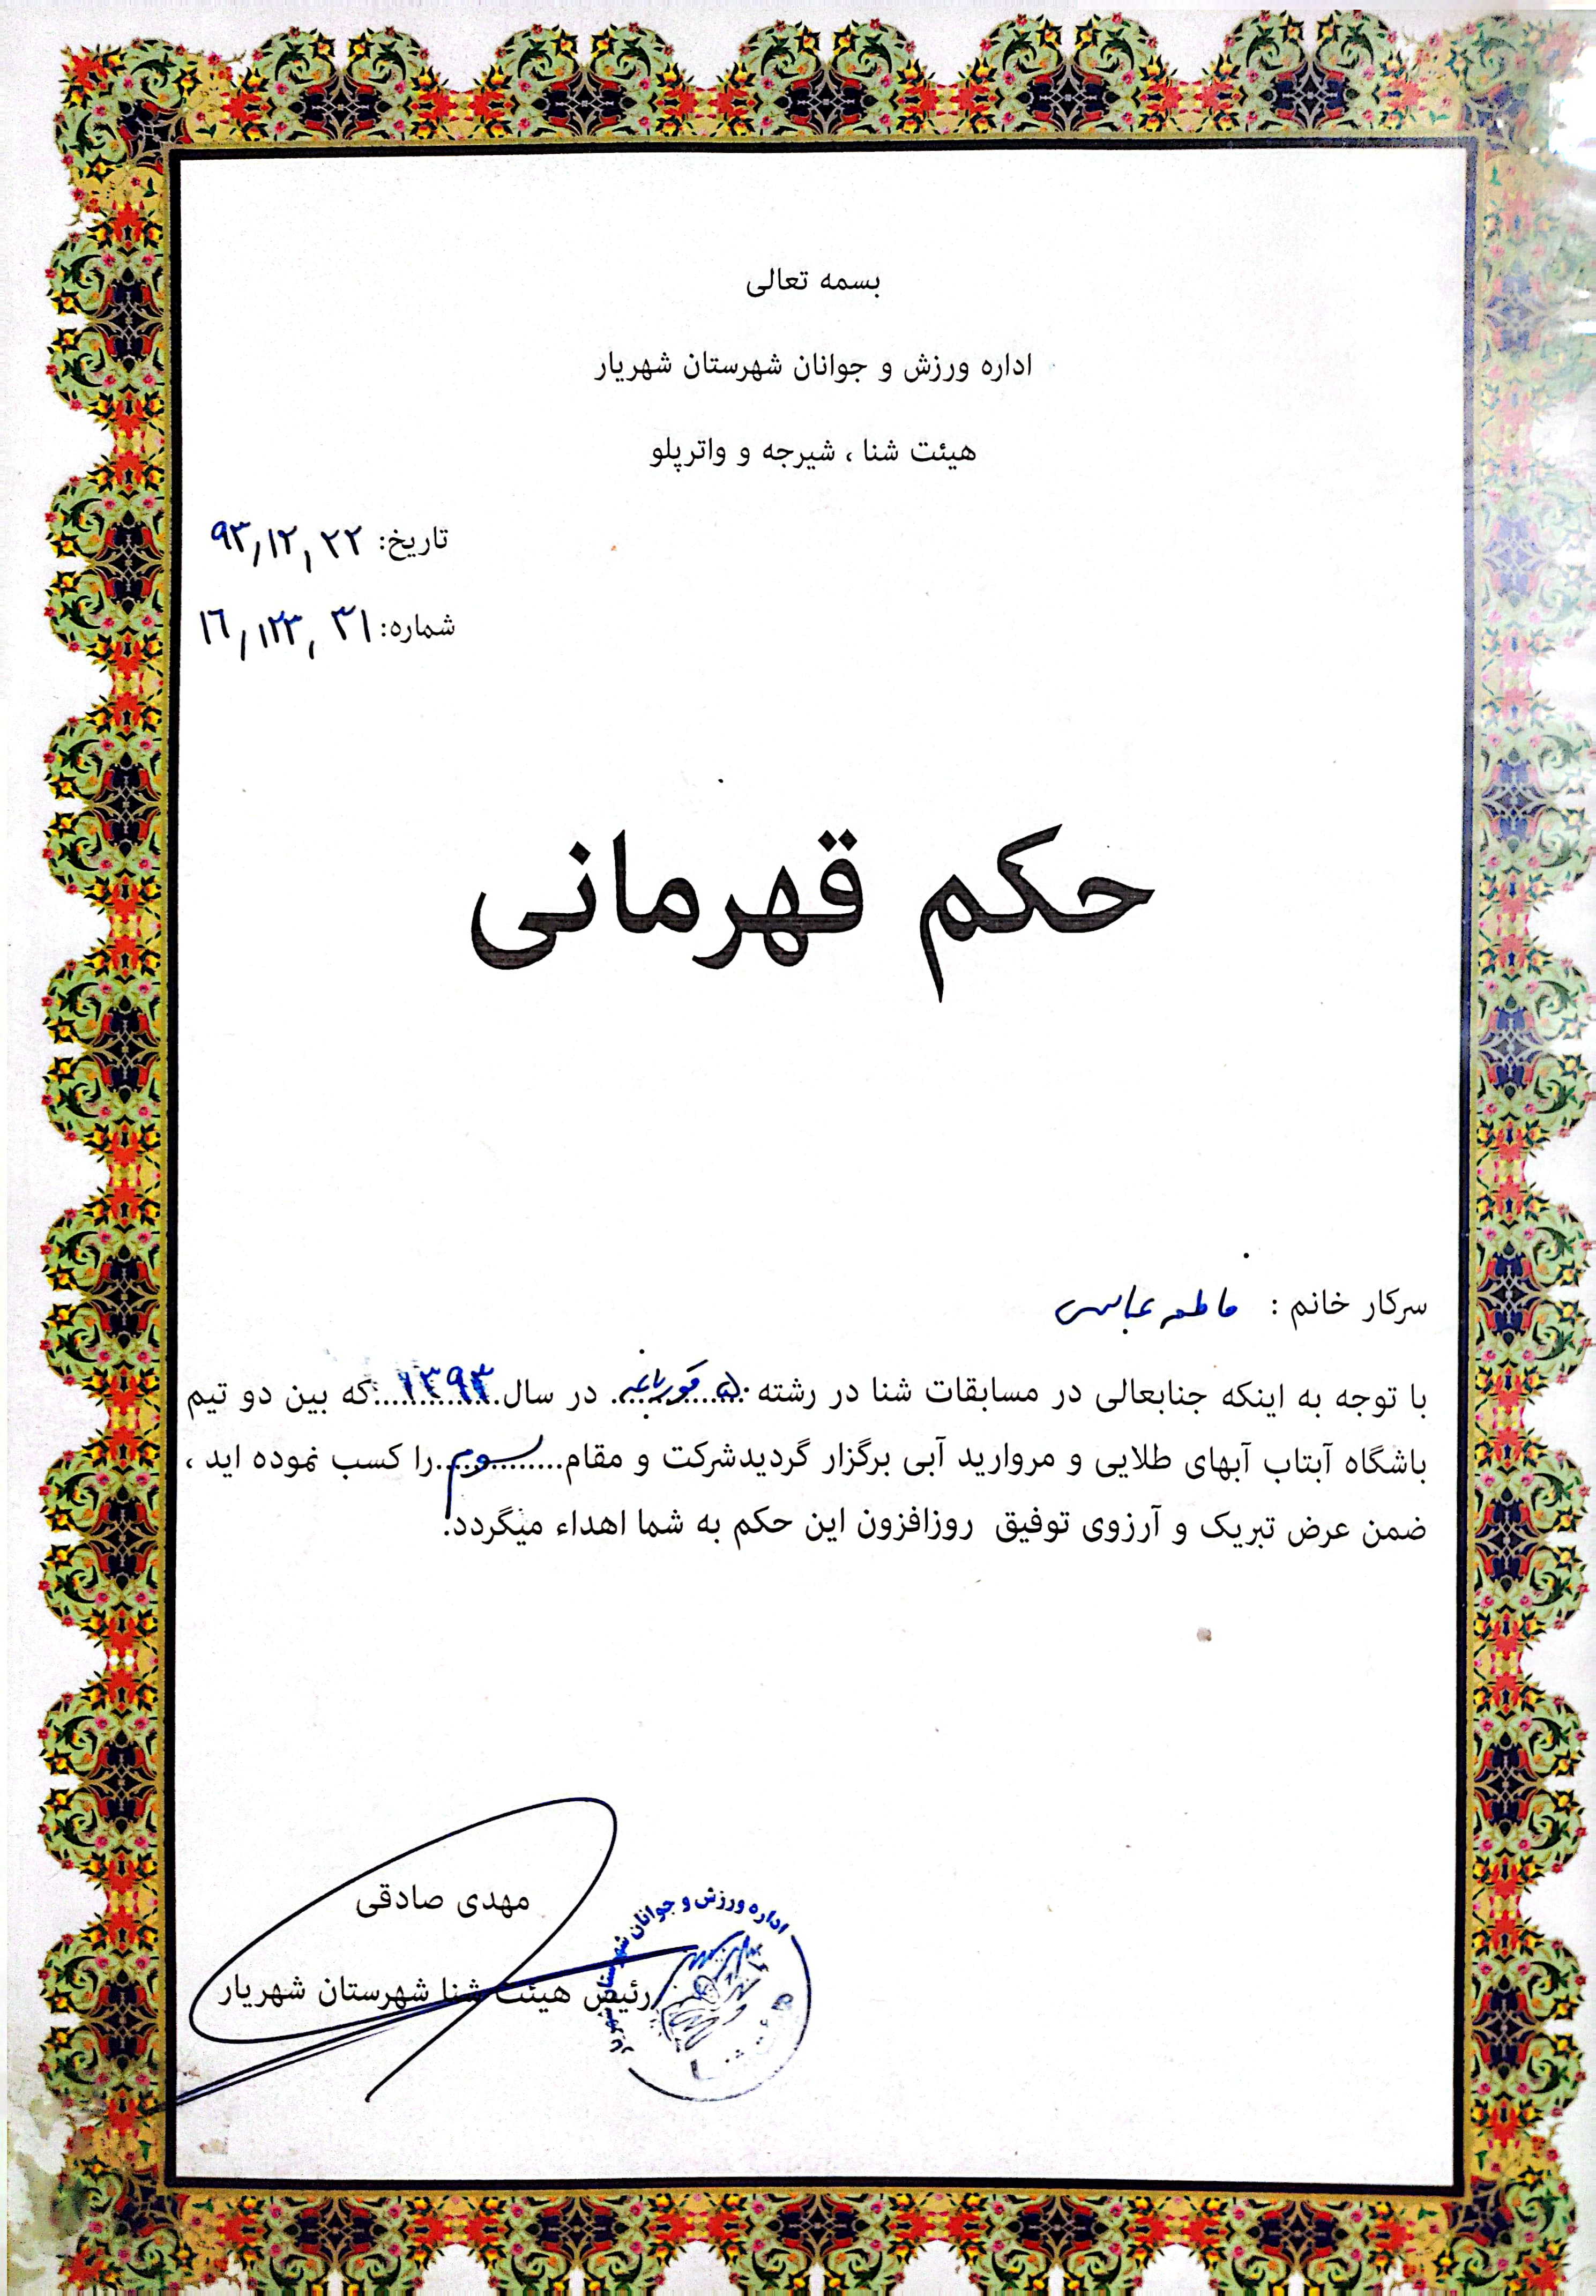 بسمه تعالی
اداره ورزش و جوانان شهرستان شهریار
هیئت شنا ، شیرجه و واترپلو
تاریخ: ۹۳٫۱۲٫۲۲
شماره: ۱٦٫۱۲۳٫۳۱
حکم قهرمانی
سرکار خانم : فاطمه عباسی
با توجه به اینکه جنابعالی در مسابقات شنا در رشته ۵۰ در سال ۱۳۹۳ که بین دو تیم
باشگاه آبتاب آبهای طلایی و مروارید آبی برگزار گردیدشرکت و مقام سوم را کسب نموده اید ،
ضمن عرض تبریک و آرزوی توفیق روزافزون این حکم به شما اهداء میگردد.
مهدی صادقی
رئیس هیئت شنا شهرستان شهریار
اداره ورزش و جوانان شهرستان شهریار
هیئت شنا